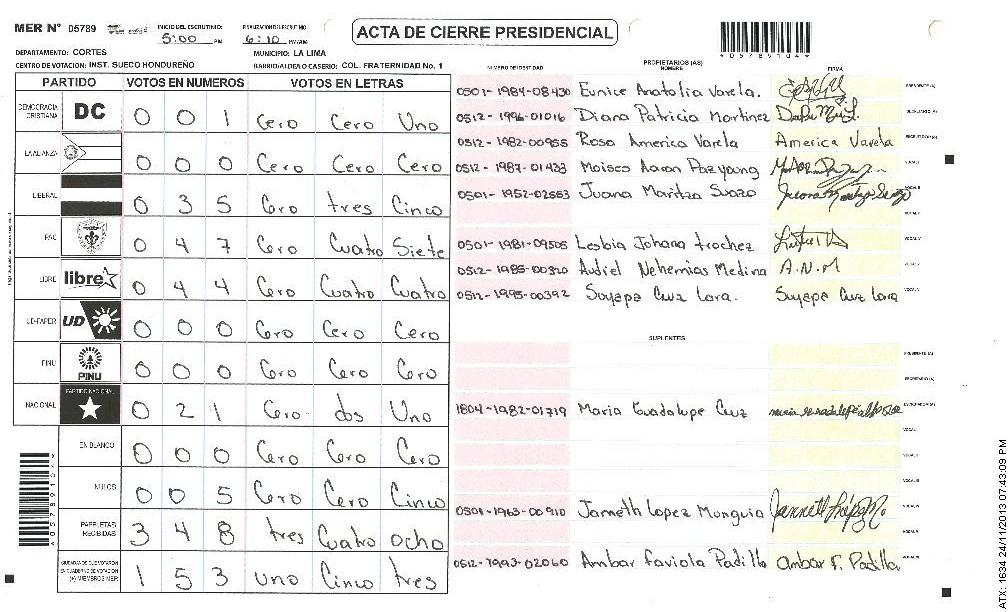 MER N° 05789 INICIO DEL ESCRUTINIO: 5:00 PM FINALIZACION DEL ESCRUTINIO 6:10 PM/AM
ACTA DE CIERRE PRESIDENCIAL
*05789104*
DEPARTAMENTO: CORTES MUNICIPIO: LA LIMA
CENTRO DE VOTACION: INST. SUECO HONDUREÑO BARRIO/ALDEA O CASERIO: COL. FRATERNIDAD No. 1
PARTIDO VOTOS EN NUMEROS VOTOS EN LETRAS
DEMOCRACIA CRISTIANA DC 0 0 1 Cero Cero Uno
LA ALIANZA 0 0 0 Cero Cero Cero
LIBERAL 0 3 5 Cero tres Cinco
PAC 0 4 7 Cero Cuatro Siete
LIBRE libre 0 4 4 Cero Cuatro Cuatro
UD-FAPER UD 0 0 0 Cero Cero Cero
PINU PINU 0 0 0 Cero Cero Cero
NACIONAL PARTIDO NACIONAL 0 2 1 Cero dos Uno
EN BLANCO 0 0 0 Cero Cero Cero
NULOS 0 0 5 Cero Cero Cinco
PAPELETAS RECIBIDAS 3 4 8 tres Cuatro ocho
CIUDADANOS QUE VOTARON EN CUADERNO DE VOTACION (+) MIEMBROS MER 1 5 3 uno Cinco tres
NUMERO DE IDENTIDAD PROPIETARIOS (AS) NOMBRE FIRMA
0501-1984-08430 Eunice Anatolia Varela. PRESIDENTE (A)
0512-1996-01016 Diana Patricia Martinez SECRETARIO (A)
0512-1982-00955 Rosa America Varela America Varela ESCRUTADOR (A)
0512-1987-01433 Moises Aaron Paz young VOCAL I
0501-1952-02553 Juana Maritza Suazo VOCAL II
VOCAL III
0501-1981-09505 Lesbia Johana trochez VOCAL IV
0512-1985-00320 Audiel Nehemias Medina A.N.M VOCAL V
0512-1995-00392 Suyapa Cruz Lara. Suyapa Cruz Lara VOCAL VI
SUPLENTES
PRESIDENTE (A)
SECRETARIO (A)
1804-1982-01719 Maria Guadalupe Cruz ESCRUTADOR (A)
VOCAL I
VOCAL II
VOCAL III
0501-1963-00910 Janneth Lopez Munguia
VOCAL V
0512-1993-02060 Ambar faviola Padilla Ambar F. Padilla VOCAL VI
*05789104*
ATX: 1634 24/11/2013 07:43:09 PM